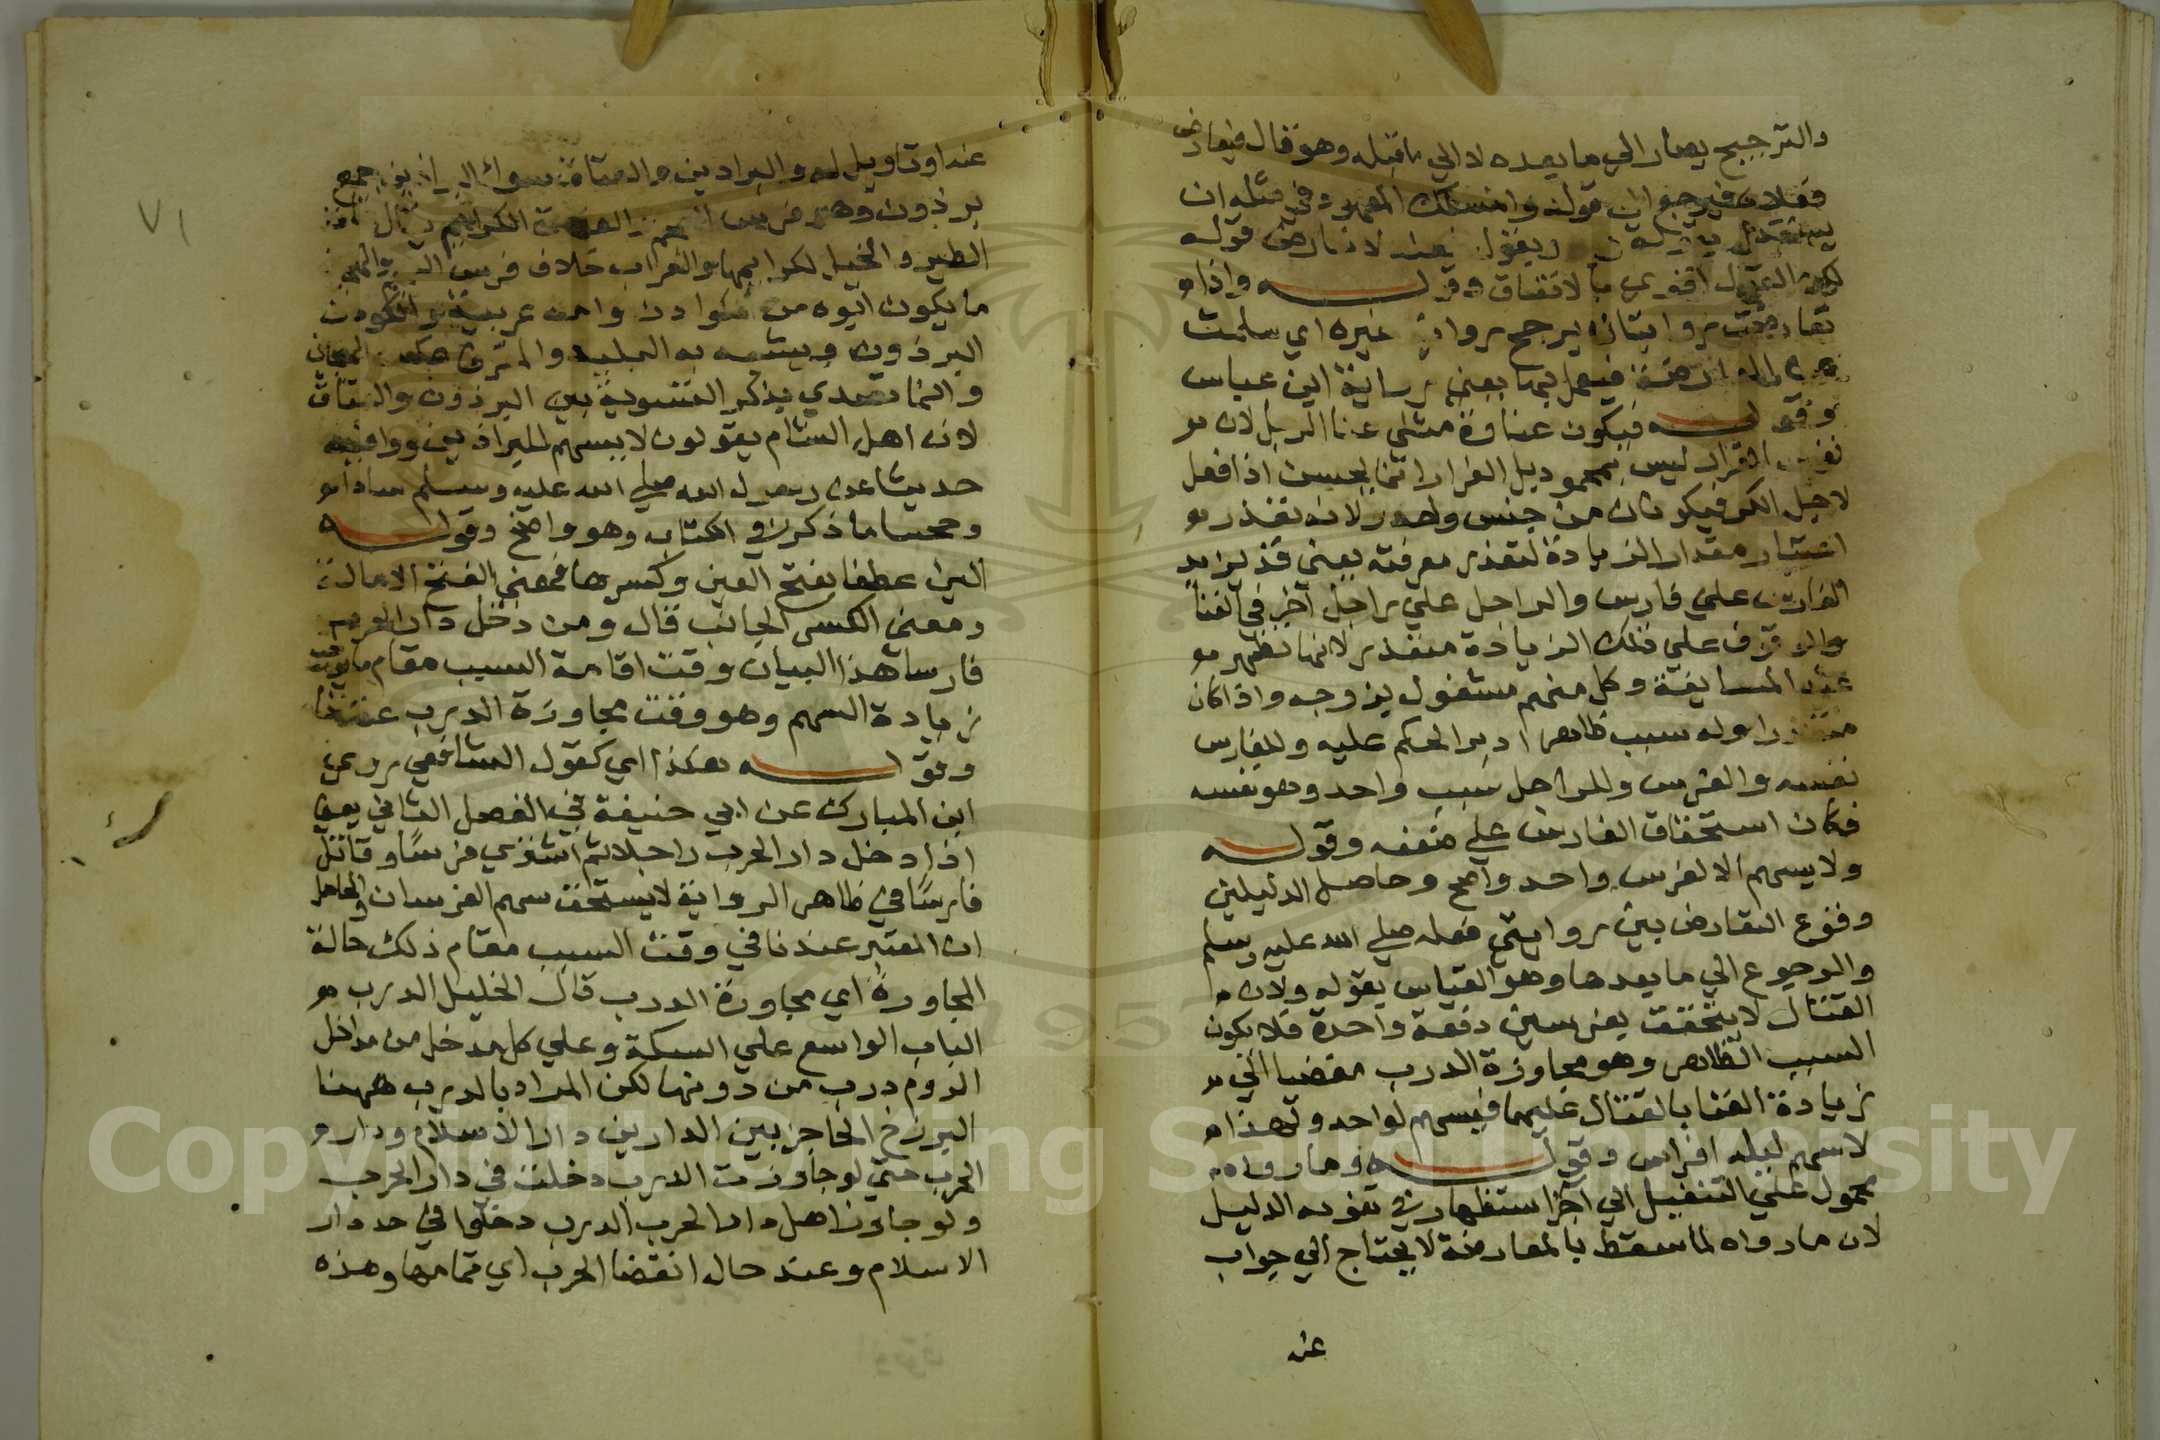 والترجيح يصار الى ما بعده لا الي ما قبله وهو قال فيعارض
فعلاه فيرجع الى قوله وانسلك المعهود في مثله ان
يستدل بقوله ويقول فعله لا يعارض قوله
لكن القول اقوى بالاتفاق وقوله واذا
تعارضت روايتاه يرجح رواية غيره اي سلمت
عن المعارضة فيعمل بها يعني رواية ابن عباس
وقوله فيكون عناؤه مثلي عنا الرجل لان
نفس الفرار ليس بمحمود بل الفرار انما يحسن اذا فعل
لاجل الكر فيكونان من جنس واحد ولانه تعذر
اعتبار مقدار الزيادة لتعذر معرفته يعني قد يزيد
الفارس على فارس والراجل علي راجل آخر في الغناً
والوقوف علي تلك الزيادة متعذر لانها تظهر
عند المسايفة وكل منهم مشغول بروحه واذا كان
متعذرا وله سبب ظاهر ادير الحكم عليه وللفارس
نفسه والفرس وللراجل سبب واحد وهو نفسه
فكان استحقاق الفارس على ضعفه وقوله
ولا يسهم الا لفرس واحد واضح وحاصل الدليلين
وقوع التعارض بين روايتي فعله صلي الله عليه وسلم
والرجوع الي ما بعدها وهو القياس بقوله ولان
القتال لا يتحقق بفرسين دفعة واحدة فلا يكون
السبب الظاهر وهو مجاوزة الدرب مفضيا الي
زيادة الغنا بالقتال عليهما فيسهم لواحد ولهذا
لا يسهم لثلثة افراس وقوله وما رواه
محمول علي التنفيل الي آخر استظهار في تقوية الدليل
لان ما رواه لما سقط بالمعارضة لا يحتاج الي جواب
عنه
٧١
عنه او تاويل له والبراذين والعتاق سواء البراذين جمع
برذون وهو فرس العجم والعتاق الكرايم يقال عتاق
الطير والخيل لكرايمها والعراب خلاف فرس
ما يكون ابوه من الكوادن وامه عربية والكودن
البرذون ويشبه به البليد والمقرف عكس الهجين
وانما تصدي بذكر التسوية بين البرذون والعتاق
لان اهل الشام يقولون لا يسهم للبراذين ورووا فيه
حديثا عن رسول الله صلي الله عليه وسلم شاذا
وحجتنا ما ذكر في الكتاب وهو واضح وقوله
الين عطفا بفتح العين وكسرها فمعني الفتح الامالة
ومعني الكسر الجانب قال ومن دخل دار الحرب
فارسا هذا البيان وقت اقامة السبب مقام ما يوجب
زيادة السهم وهو وقت مجاوزة الدرب عندنا
وقوله هكذا اي كقول الشافعي روى
ابن المبارك عن ابي حنيفة في الفصل الثاني يعني
اذا دخل دار الحرب راجلا ثم اشتري فرسًا وقاتل
فارسًا في ظاهر الرواية لا يستحق سهم الفرسان والحاصل
ان المعتبر عندنا في وقت السبب مقام ذلك حالة
المجاوزة اي مجاوزة الدرب قال الخليل الدرب
الباب الواسع علي السكة وعلي كل مدخل من مداخل
الروم درب من دونها لكن المراد بالدرب ههنا
البرزخ الحاجز بين الدارين دار الاسلام ودار
الحرب حتي لو جاوزت الدرب دخلت في دار الحرب
ولو جاوز اهل دار الحرب الدرب دخلوا في حد دار
الاسلام وعند حال انقضا الحرب اي تمامها وهذه
Copyright © King Saud University
1957